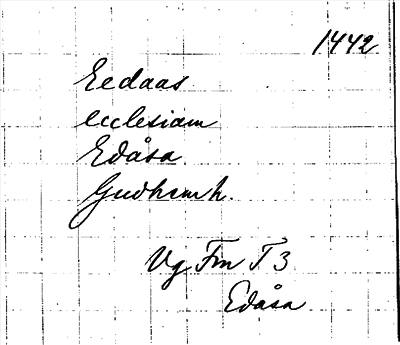 1442
Eedaas
ecclesiam
Edåsa
Gudhemh.
Vg Fm T 3
Edåsa